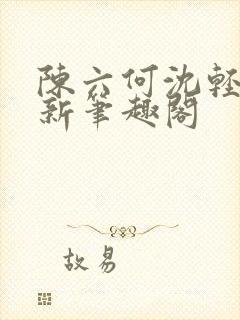 陳六何沈輕
新筆趣閣
故易